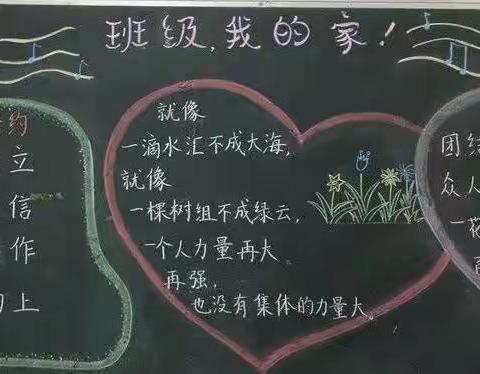 班级,我的家!
约
立
信
作
上
就像
一滴水汇不成大海,
就像
一棵树组不成绿云,
一个人力量再大
再强,
也没有集体的力量大。
团结
众人
一花